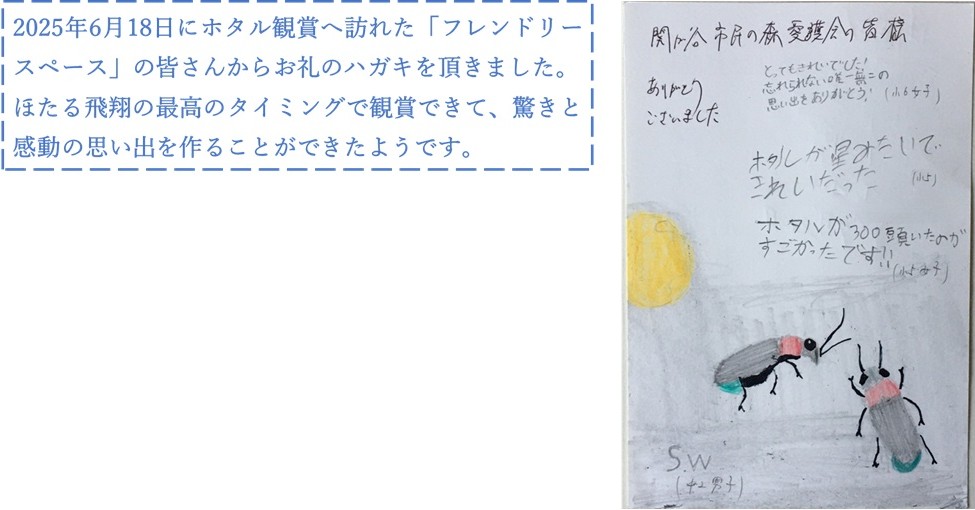 2025年6月18日にホタル観賞へ訪れた「フレンドリー
スペース」の皆さんからお礼のハガキを頂きました。
ほたる飛翔の最高のタイミングで観賞できて、驚きと
感動の思い出を作ることができたようです。
関ヶ谷市民の森愛護会の皆様
ありがとう
ございました
とってもきれいでした!
忘れられない唯一無二の
思い出をありがとう!
(小6女子)
ホタルが星みたいで
きれいだった
(小5)
ホタルが300頭いたのが
すごかったです!!
(小5女子)
S.W
(中2男子)